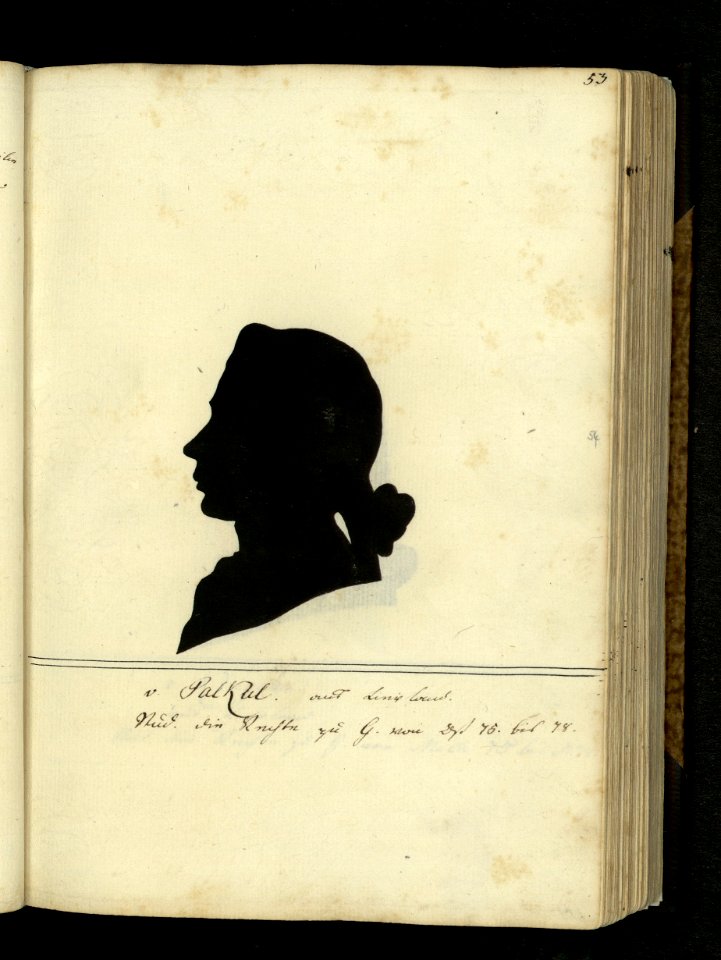 53
54
v Patkul. aus Lievland.
Stud. die Rechte zu G. von 75. bis 78.